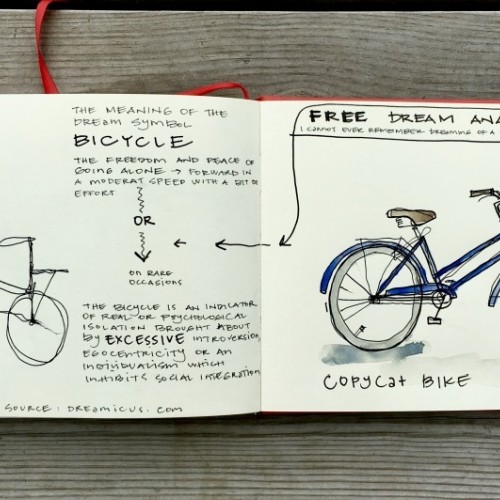 THE MEANING OF THE
DREAM SYMBOL
BICYCLE
THE FREEDOM AND PEACE OF
GOING ALONE → FORWARD IN
A MODERAT SPEED WITH A BIT OF
EFFORT
OR
ON RARE
OCCASIONS
THE BICYCLE IS AN INDICATOR
OF REAL OR PSYCHOLOGICAL
ISOLATION BROUGHT ABOUT
by EXCESSIVE INTROVERSION,
EGOCENTRICITY OR AN
INDIVIDUALISM WHICH
INHIBITS SOCIAL INTEGRATION
SOURCE: DREAMICUS.COM
FREE DREAM ANA
I CANNOT EVER REMEMBER DREAMING OF A
COPYCAT BIKE